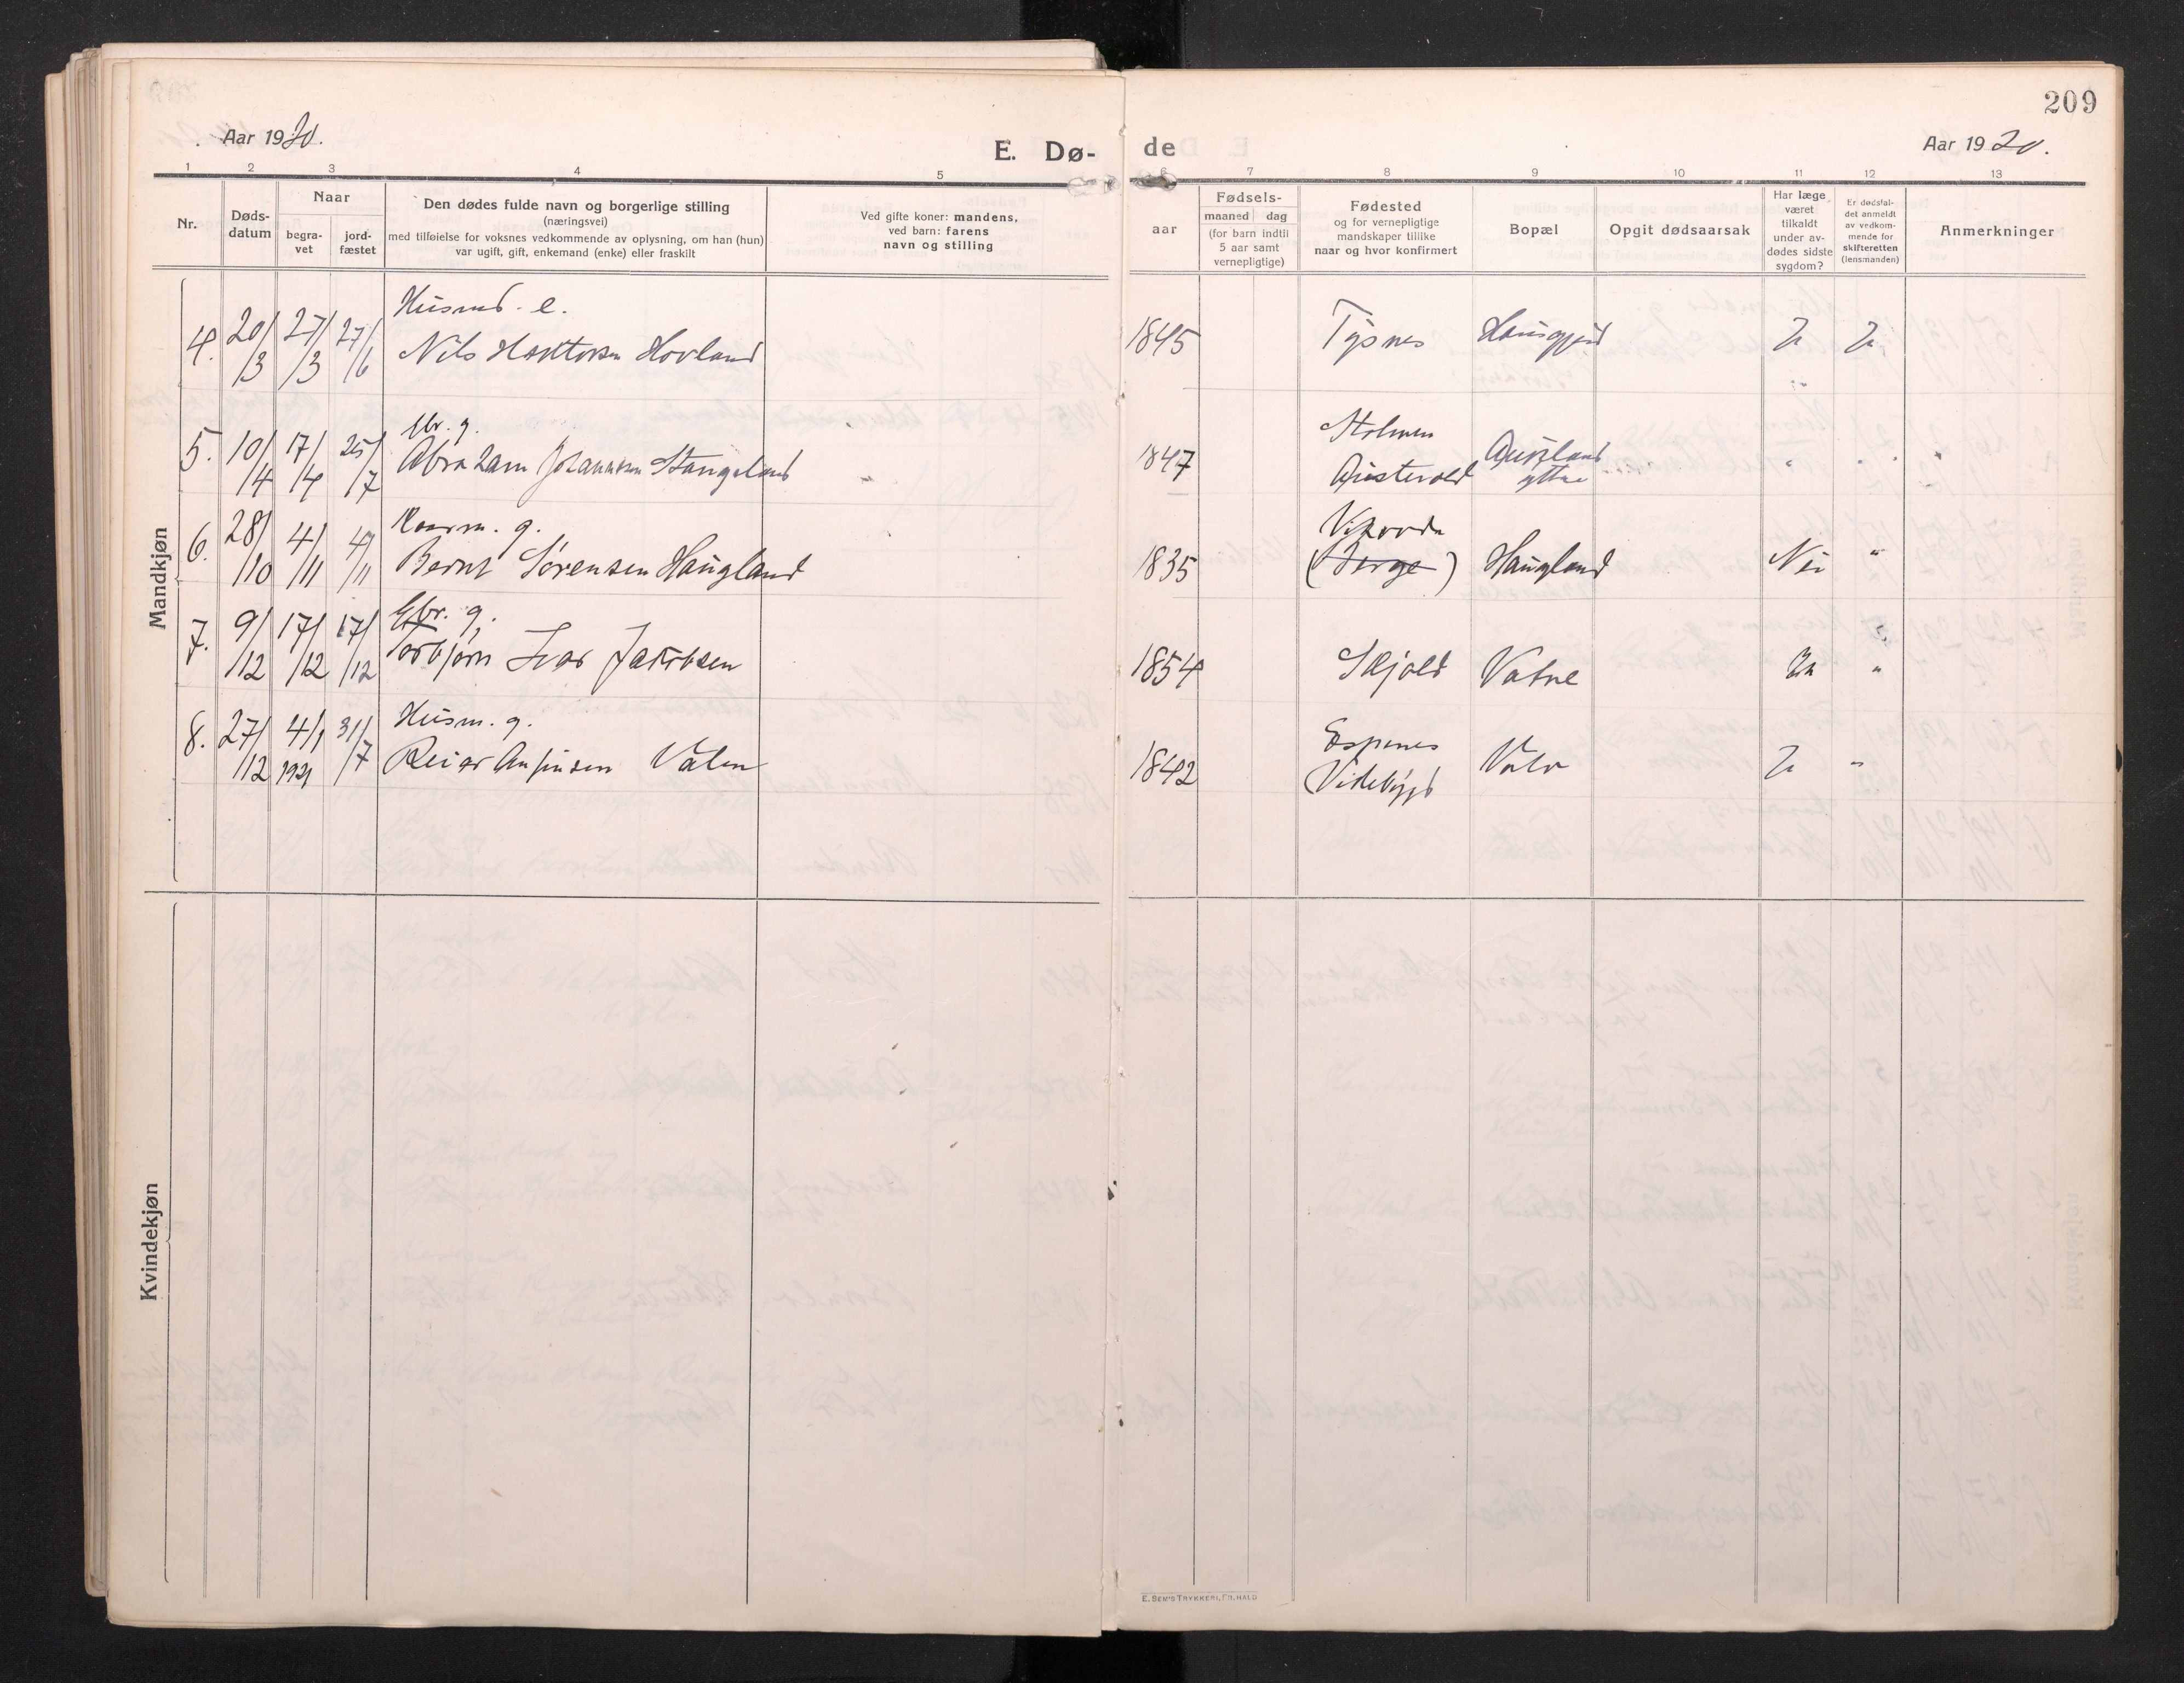 209
Aar 1920.
E. Dø-
de
Aar 1920.
1 2 3 4 5 6 7 8 9 10 11 12 13
Nr.
Døds-
datum
Naar
begra-
vet
jord-
fæstet
Den dødes fulde navn og borgerlige stilling
(næringsvei)
med tilføielse for voksnes vedkommende av oplysning, om han (hun)
var ugift, gift, enkemand (enke) eller fraskilt
Ved gifte koner: mandens,
ved barn: farens
navn og stilling
Fødsels-
aar
maaned dag
(for barn indtil
5 aar samt
vernepligtige)
Fødested
og for vernepligtige
mandskaper tillike
naar og hvor konfirmert
Bopæl
Opgit dødsaarsak
Har læge
været
tilkaldt
under av-
dødes sidste
sygdom?
Er dødsfal-
det anmeldt
av vedkom-
mende for
skifteretten
(lensmanden)
Anmerkninger
Mandkjøn
Husmd. e.
4. 20/3 27/3 27/6 Nils Hovland 1845 Tysnes Ja Ja
g.
Stolmen
5. 10/4 17/4 25/7 Abraham Johannesen Stangeland 1847 Austevold Aukland yttre " "
Kaarm. g.
6. 28/10 4/11 4/11 Bernt Sørensen Haugland 1835 (Berge) Haugland Nei "
Gbr. g.
7. 9/12 17/12 17/12 Torbjørn Ivar Jakobsen 1854 Skjold Vatne Ja "
Husm. g.
Espenes
8. 27/12 4/1 1921 31/7 Reier Anfinsen Valen 1842 Vikebygd Ja "
Kvindekjøn
E. SEM'S TRYKKERI, FR.HALD